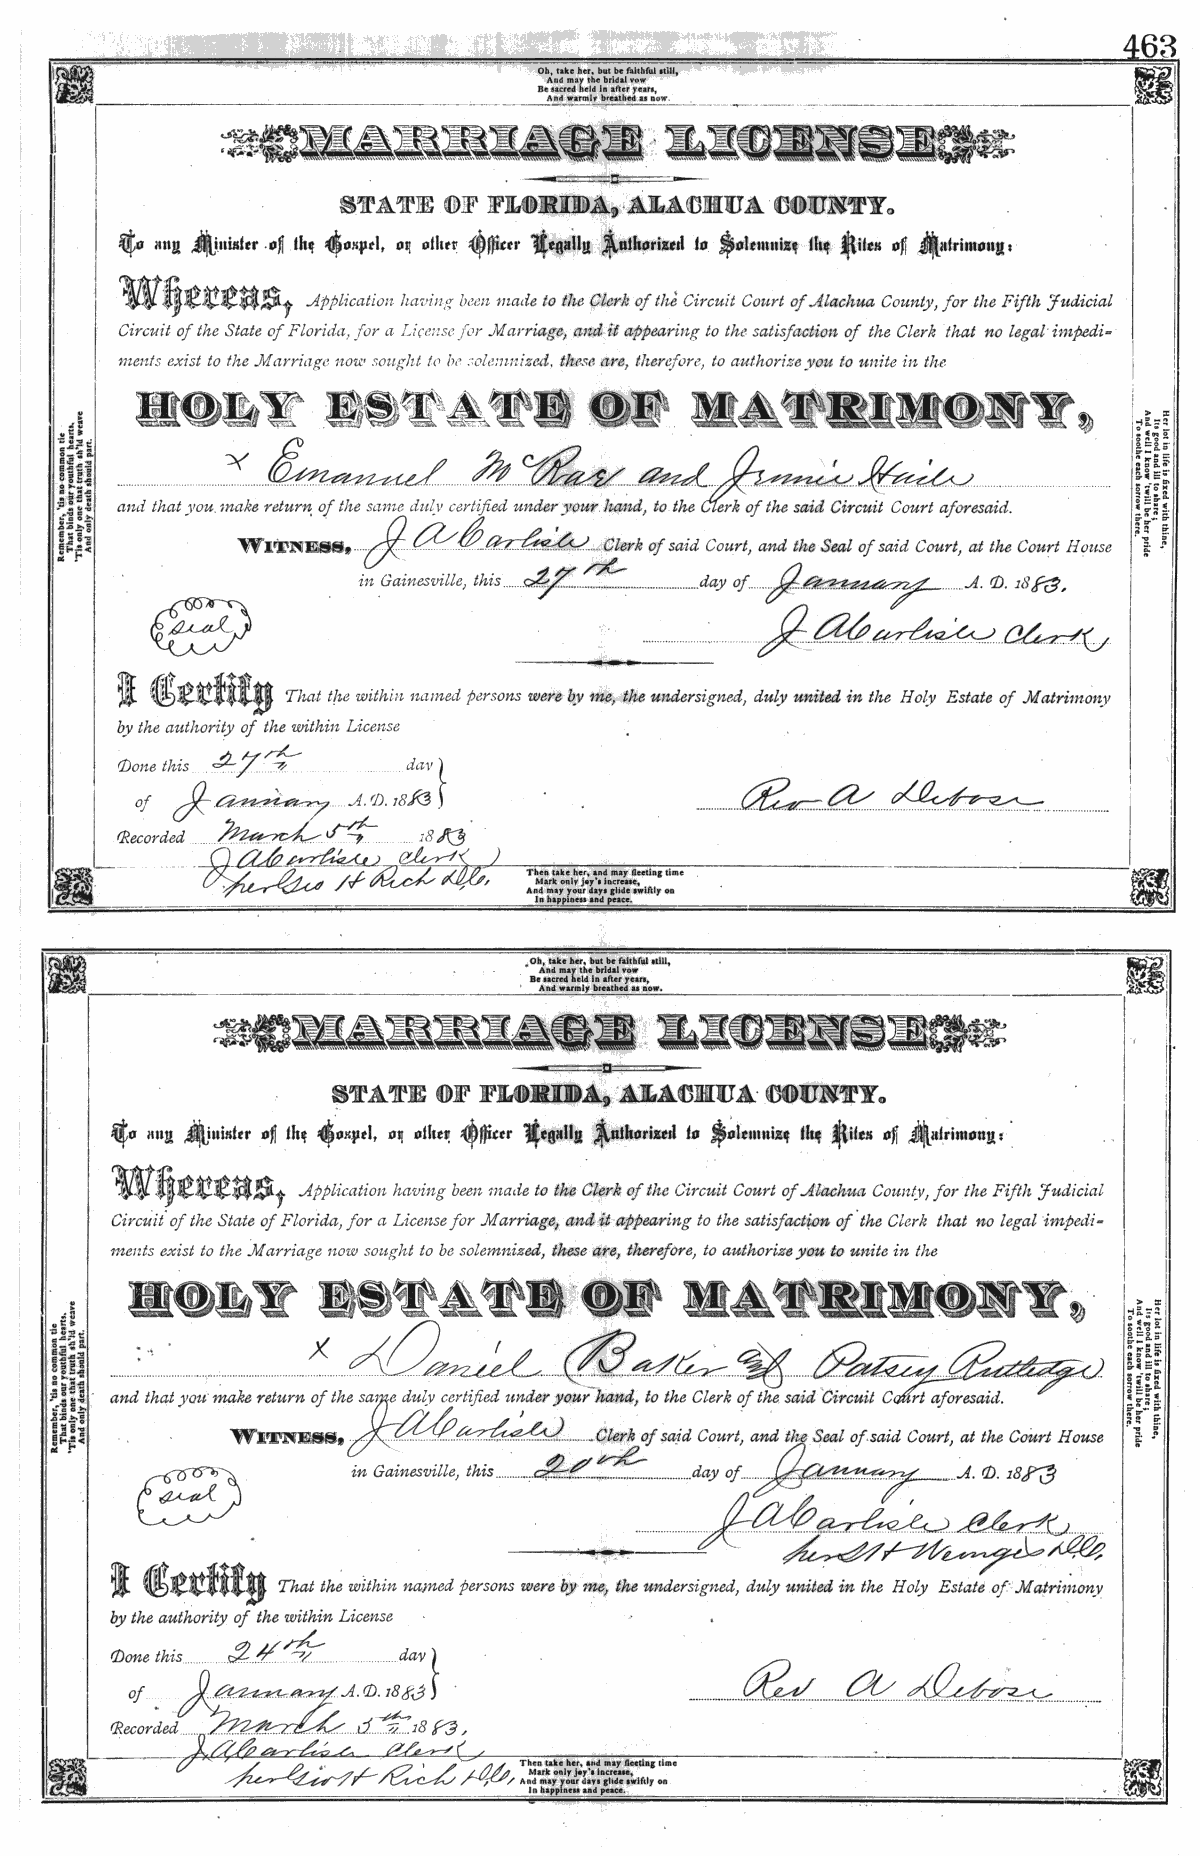 463
Oh, take her, but be faithful still,
And may the bridal vow
Be sacred held in after years,
And warmly breathed as now.
MARRIAGE LICENSE
STATE OF FLORIDA, ALACHUA COUNTY.
To any Minister of the Gospel, or other Officer Legally Authorized to Solemnize the Rites of Matrimony:
Whereas, Application having been made to the Clerk of the Circuit Court of Alachua County, for the Fifth Judicial
Circuit of the State of Florida, for a License for Marriage, and it appearing to the satisfaction of the Clerk that no legal impedi-
ments exist to the Marriage now sought to be solemnized, these are, therefore, to authorize you to unite in the
HOLY ESTATE OF MATRIMONY,
x Emanuel McRae and Jennie Haile
and that you make return of the same duly certified under your hand, to the Clerk of the said Circuit Court aforesaid.
WITNESS, J A Carlisle Clerk of said Court, and the Seal of said Court, at the Court House
in Gainesville, this 27th day of January A. D. 1883.
seal
J A Carlisle Clerk
I Certify That the within named persons were by me, the undersigned, duly united in the Holy Estate of Matrimony
by the authority of the within License
Done this 27th day
of January A. D. 1883
Rev A Debose
Recorded March 5th 1883
J A Carlisle Clerk
per Geo H Rich D.C.
Remember, 'tis no common tie
That binds our youthful hearts,
'Tis only one that truth sh'ld weave
And only death should part.
Her lot in life is fixed with thine,
Its good and ill to share;
And well I know 'twill be her pride
To soothe each sorrow there.
Then take her, and may fleeting time
Mark only joy's increase,
And may your days glide swiftly on
In happiness and peace.
Oh, take her, but be faithful still,
And may the bridal vow
Be sacred held in after years,
And warmly breathed as now.
MARRIAGE LICENSE
STATE OF FLORIDA, ALACHUA COUNTY.
To any Minister of the Gospel, or other Officer Legally Authorized to Solemnize the Rites of Matrimony:
Whereas, Application having been made to the Clerk of the Circuit Court of Alachua County, for the Fifth Judicial
Circuit of the State of Florida, for a License for Marriage, and it appearing to the satisfaction of the Clerk that no legal impedi-
ments exist to the Marriage now sought to be solemnized, these are, therefore, to authorize you to unite in the
HOLY ESTATE OF MATRIMONY,
x Daniel Baker and Patsey Rutledge
and that you make return of the same duly certified under your hand, to the Clerk of the said Circuit Court aforesaid.
WITNESS, J A Carlisle Clerk of said Court, and the Seal of said Court, at the Court House
in Gainesville, this 20th day of January A. D. 1883
seal
J A Carlisle Clerk
per H D.C.
I Certify That the within named persons were by me, the undersigned, duly united in the Holy Estate of Matrimony
by the authority of the within License
Done this 24th day
of January A. D. 1883
Rev A Debose
Recorded March 5th 1883.
J A Carlisle Clerk
per Geo H Rich D.C.
Remember, 'tis no common tie
That binds our youthful hearts,
'Tis only one that truth sh'ld weave
And only death should part.
Her lot in life is fixed with thine,
Its good and ill to share;
And well I know 'twill be her pride
To soothe each sorrow there.
Then take her, and may fleeting time
Mark only joy's increase,
And may your days glide swiftly on
In happiness and peace.